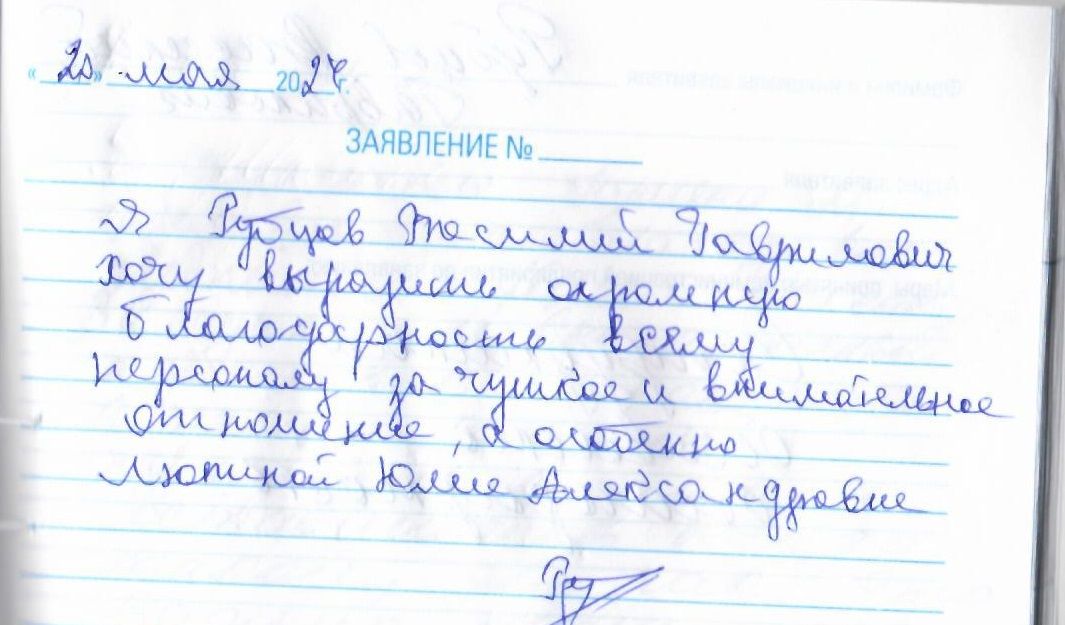 «20» мая 2024г.
ЗАЯВЛЕНИЕ №
Я Рубцов Василий Гаврилович
хочу выразить огромную
благодарность всему
персоналу за чуткое и внимательное
отношение, а особенно
Люпиной Юлие Александровне